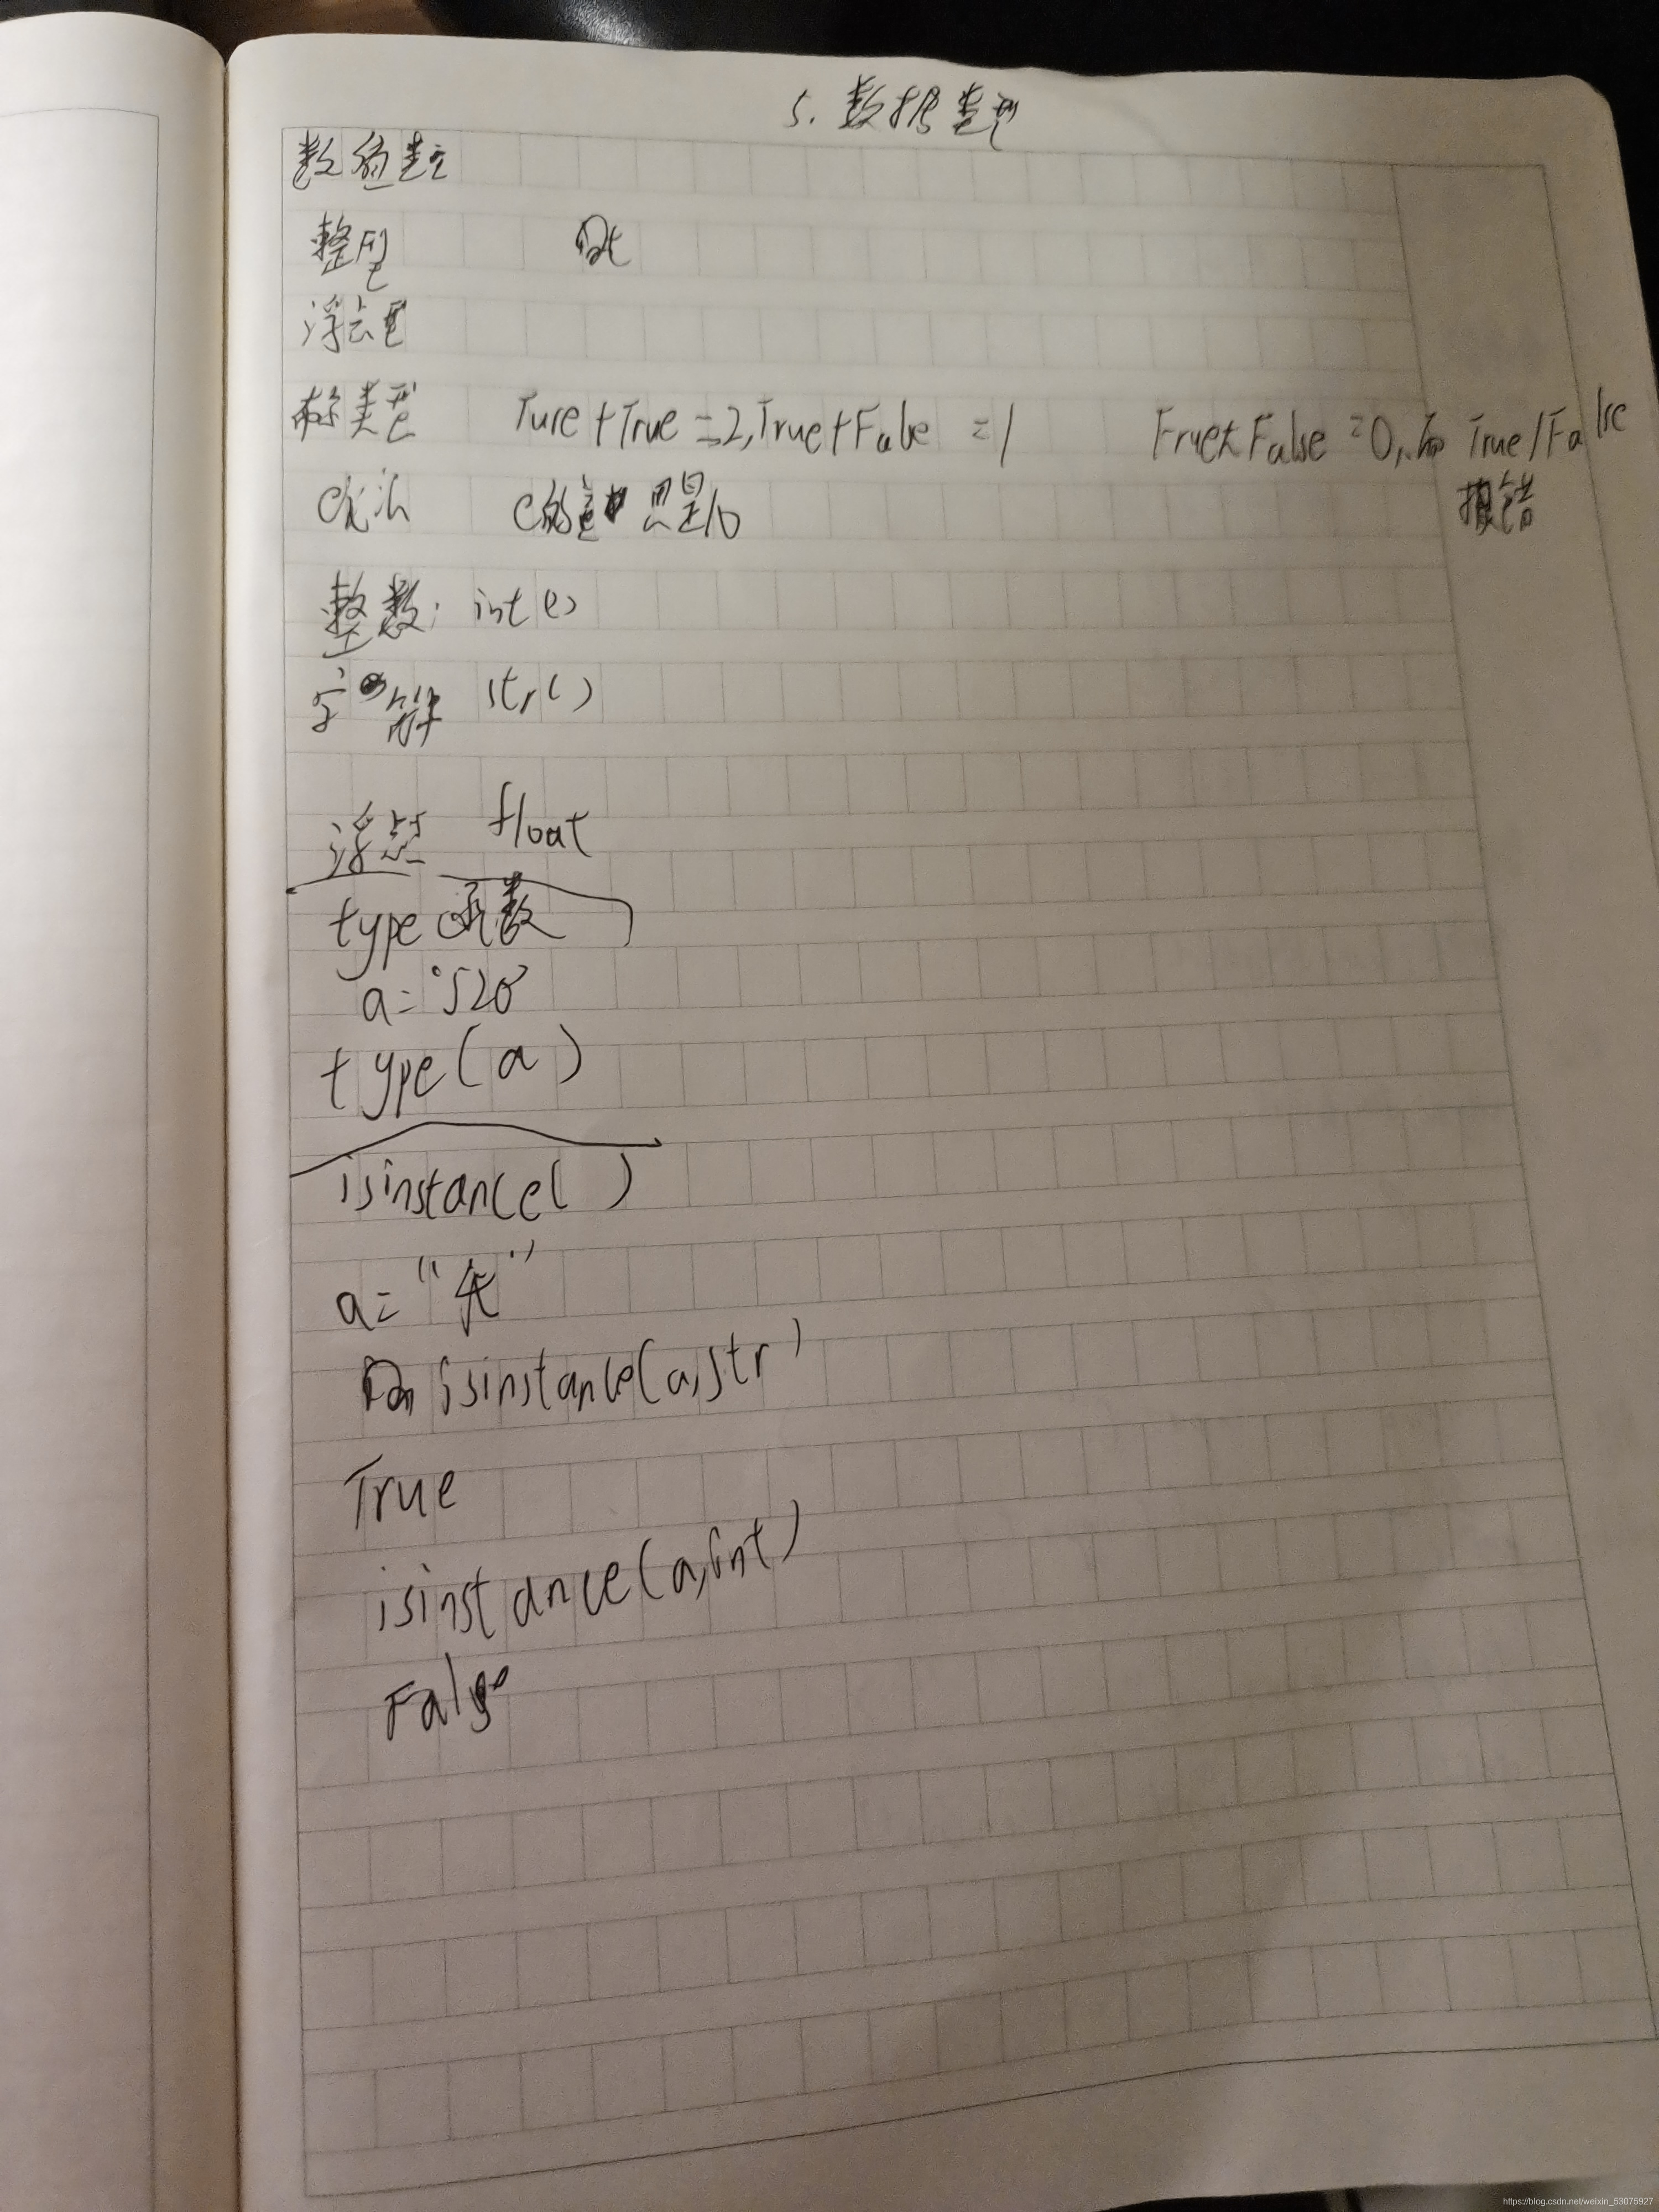 5. 数据类型
数值类型
整型
浮点型
布尔类型 Ture+True=2,True+False =1 True×False=0,而 True/False
报错
e记法 e的意思是10
整数: int()
字符串 str()
浮点 float
type函数
a='520'
type(a)
isinstance( )
a="失"
isinstance(a,str)
True
isinstance(a,int)
False
https://blog.csdn.net/weixin_53075927